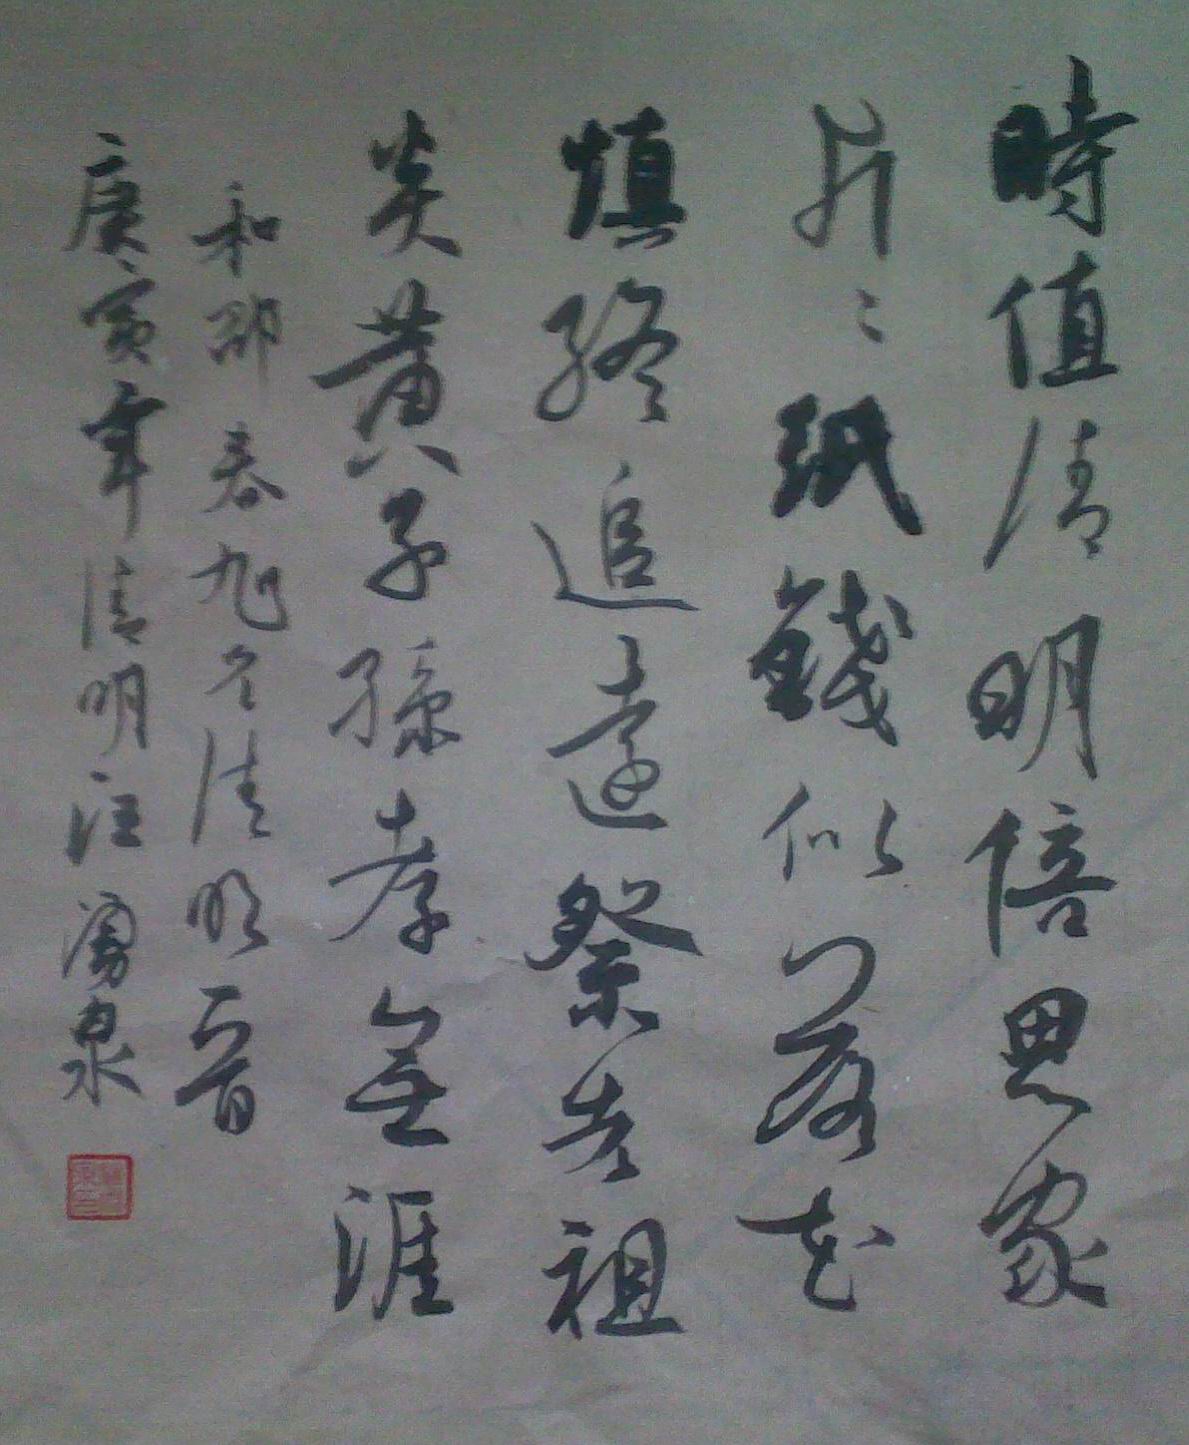 時值清明倍思家
片〻紙錢似落花
慎終追遠祭考祖
炎黃子孫孝無涯
和邵春旭兄清明一首
庚寅年清明汪湧泉